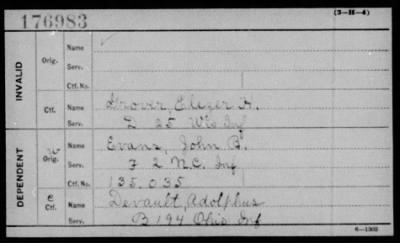 176983
(3-H-4)
INVALID
Orig. Name
Serv.
Ctf. No.
Ctf. Name Grover, Eliezer H.
Serv. D 25 Wis Inf
DEPENDENT
W Orig. Name Evans, John B.
Serv. F 2 N.C. Inf
Ctf. No. 135.035
C Ctf. Name Devault, Adolphus
Serv. B 194 Ohio Inf